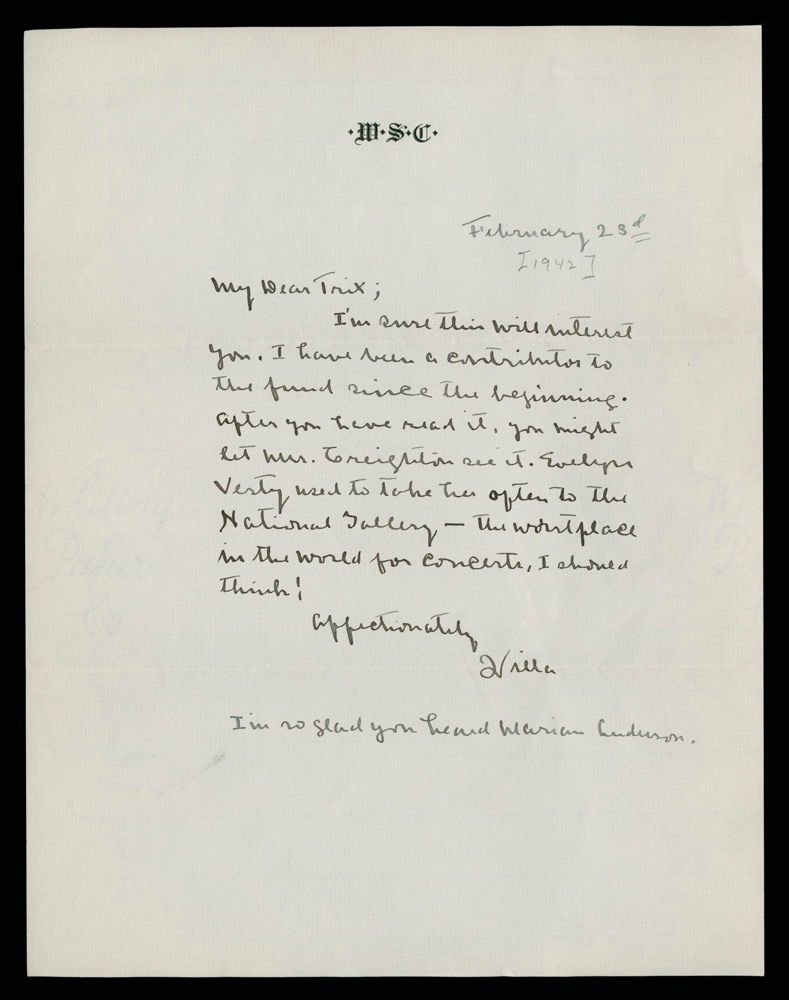 ·W·S·C·
February 23d
[1942]
My Dear Trix;
I'm sure this will interest
you. I have been a contributor to
the fund since the beginning.
After you have read it, you might
let Mrs. Creighton see it. Evelyn
used to take her often to the
National Gallery — the worst place
in the world for concerts, I should
think!
Affectionately
Willa
I'm so glad you heard Marian Anderson.
Whiting
Paper
Co